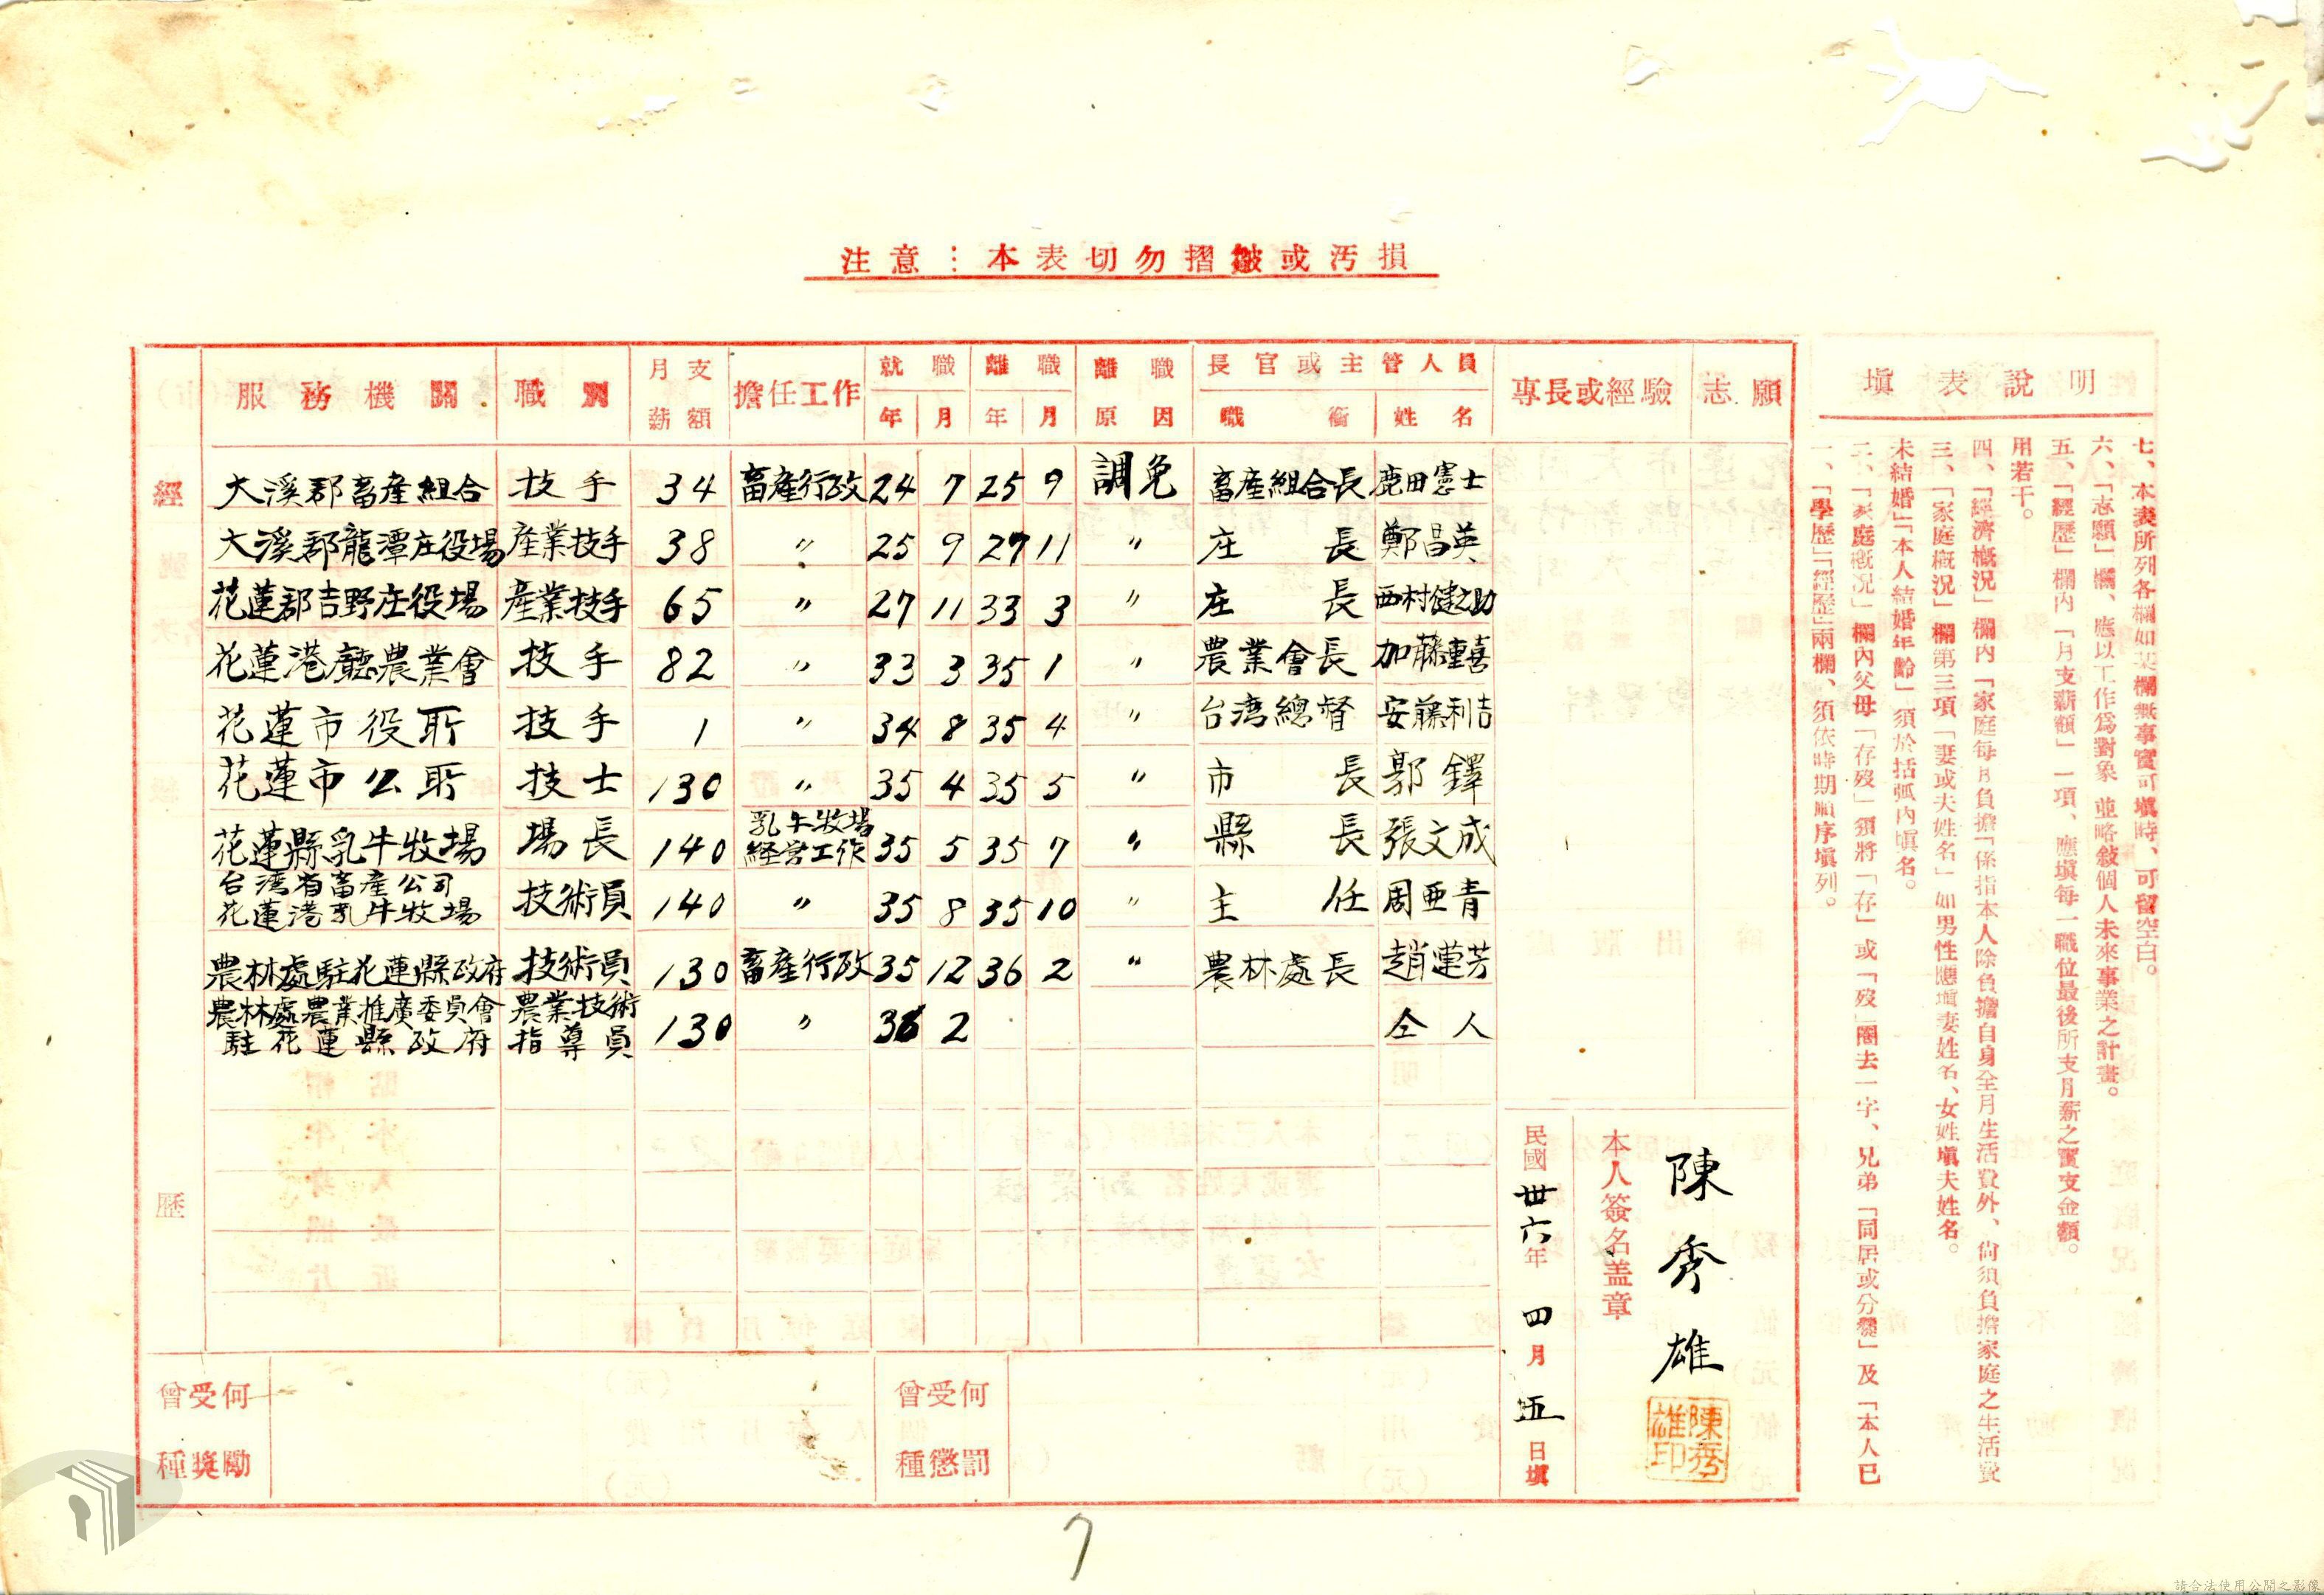 注意：本表切勿摺皺或污損
經歷
服務機關 職別 月支薪額 擔任工作 就職年 月 離職年 月 離職原因 長官或主管人員職銜 姓名 專長或經驗 志願
大溪郡畜產組合 技手 34 畜產行政 24 7 25 9 調免 畜產組合長 鹿田憲士
大溪郡龍潭庄役場 產業技手 38 〃 25 9 27 11 〃 庄長 鄭昌英
花蓮郡吉野庄役場 產業技手 65 〃 27 11 33 3 〃 庄長 西村健之助
花蓮港廳農業會 技手 82 〃 33 3 35 1 〃 農業會長 加藤重喜
花蓮市役所 技手 1 〃 34 8 35 4 〃 台湾總督 安藤利吉
花蓮市公所 技士 130 〃 35 4 35 5 〃 市長 郭鐸
花蓮縣乳牛牧場 場長 140 乳牛牧場経営工作 35 5 35 7 〃 縣長 張文成
台湾省畜產公司花蓮港乳牛牧場 技術員 140 〃 35 8 35 10 〃 主任 周亜青
農林處駐花蓮縣政府 技術員 130 畜產行政 35 12 36 2 〃 農林處長 趙蓮芳
農林處農業推廣委員會駐花蓮縣政府 農業技術指導員 130 〃 36 2 仝人
曾受何種獎勵
曾受何種懲罰
本人簽名盖章
陳秀雄
陳秀雄印
民國卅六年四月五日填
填表說明
一、「學歷」「經歷」兩欄、須依時期順序填列。
二、「家庭概況」欄內父母「存歿」須將「存」或「歿」圈去一字、兄弟「同居或分爨」及「本人已
未結婚」「本人結婚年齡」須於括弧內填名。
三、「家庭概況」欄第三項「妻或夫姓名」如男性應填妻姓名、女姓填夫姓名。
四、「經濟概況」欄內「家庭每月負擔」係指本人除負擔自身全月生活費外、尙須負擔家庭之生活費
用若干。
五、「經歷」欄內「月支薪額」一項、應填每一職位最後所支月薪之實支金額。
六、「志願」欄、應以工作爲對象 並略敍個人未來事業之計畫。
七、本表所列各欄如某欄無事實可填時、可留空白。
7
請合法使用公開之影像